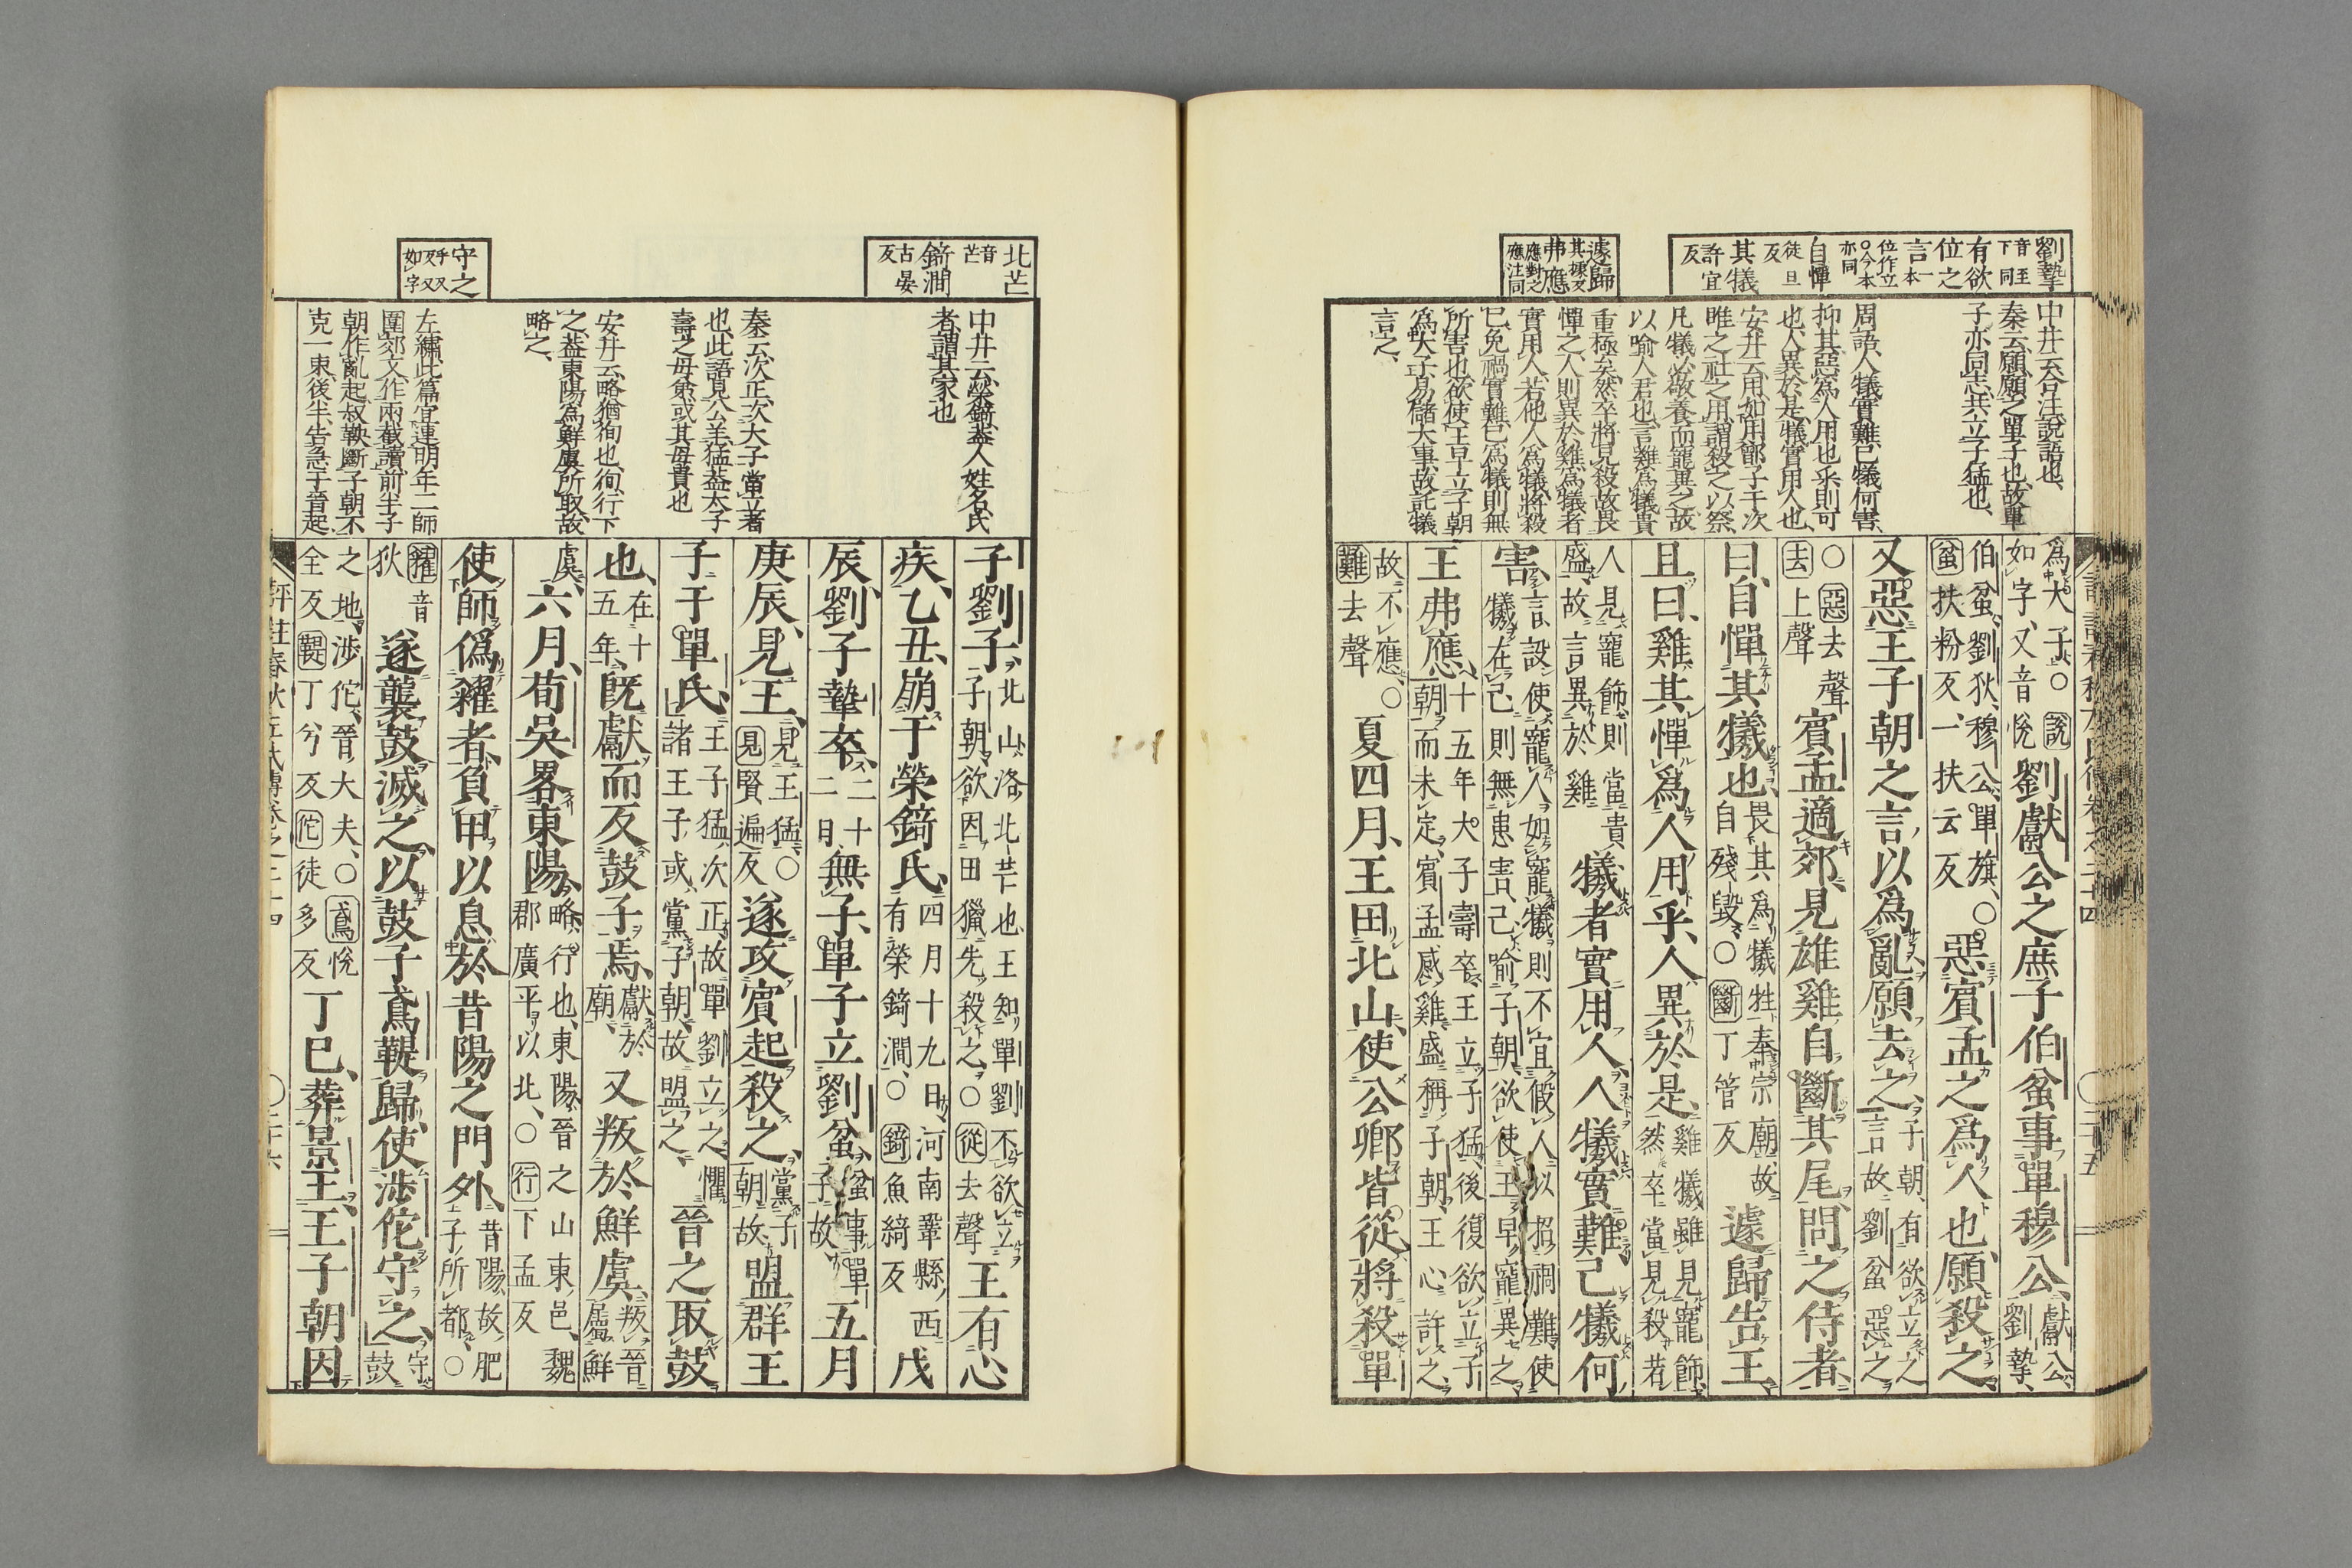 劉摯
音至
下同
有欲
位之
言一本
位作立
○今本
亦同
自憚
徒旦
反
其犧
許宜
反
遽歸
其據反
弗應
應對之
應注同
中井云合注說語也、
秦云願願之單子也故單
子亦同志共立子猛也、
周語、人犧實難、己犧何害、
抑其惡爲人用也乎、則可
也、人異於是、犧實用人也、
安井云、用如用鄫子于次
睢之社之用謂殺之以祭、
凡犧必敬養而寵異之、故
以喻人君也、言雞爲犧貴
重極矣、然卒將見殺、故畏
憚之、人則異於雞、爲犧者
實用人、若他人爲犧、將殺
己、免禍實難、己爲犧則無
所害也、欲使王早立子朝
爲大子、易儲大事、故託犧
言之、
爲大子、○說如字、又音悅劉獻公之庶子伯蚠事單穆公、獻公、劉摯、
伯蚠、劉狄、穆公、單旗、○蚠扶粉反、一扶云反惡賓孟之爲人也、願殺之、
又惡王子朝之言以爲亂、願去之、子朝有欲立之言、故劉蚠惡之、
○惡去聲去上聲賓孟適郊、見雄雞自斷其尾、問之、侍者
曰、自憚其犧也、畏其爲犧牲、奉宗廟、故自殘毀、○斷丁管反遽歸告王、
且曰、雞其憚爲人用乎、人異於是、雞犧雖見寵飾、然卒當見殺、若
人見寵飾、則當貴盛、故言異於雞犧者實用人、人犧實難、己犧何
害、言設使寵人如寵犧、則不宜假人以招禍難、使犧在己、則無患害、己喻子朝、欲使王早寵異之、
王弗應、十五年大子壽卒、王立子猛、後復欲立子朝、而未定、賓孟感雞、盛稱子朝、王心許之、
故不應、○難去聲夏四月、王田北山、使公卿皆從、將殺單
北芒
音芒
錡澗
古晏
反
守之
手又反
又如字
中井云、榮錡、蓋人姓名、氏
者、謂其家也
秦云、次正、次大子當立者
也、此語見公羊、猛蓋太子
壽之母弟、或其母貴也
安井云、略猶徇也、徇行下
之、蓋東陽爲鮮虞所取、故
略之、
左繡、此篇宜連明年二師
圍郊文、作兩截讀、前半子
朝作亂起、叔鞅斷子朝不
克一束、後半告急于晉起
子劉子、北山、洛北芒也、王知單劉不欲立子朝、欲因田獵先殺之、○從去聲王有心
疾、乙丑、崩于榮錡氏、四月十九日、河南鞏縣西有榮錡澗、○錡魚綺反戊
辰、劉子摯卒、二十二日、無子、單子立劉蚠、蚠事單子故五月
庚辰、見王、見王猛、○見賢遍反遂攻賓起、殺之、黨子朝故盟群王
子于單氏、王子猛次正、故單劉立之、懼諸王子或黨子朝、故盟之、晉之取鼓
也、在十五年、既獻而反鼓子焉、獻於廟、又叛於鮮虞、叛晉屬鮮
虞、六月、荀吳畧東陽、略行也、東陽、晉之山東邑、魏郡廣平以北、○行下孟反
使師僞糴者、負甲以息於昔陽之門外、昔陽、故肥子所都、○
糴音狄遂襲鼓滅之、以鼓子鳶鞮歸、使涉佗守之、守鼓
之地、涉佗、晉大夫、○鳶悅全反鞮丁兮反佗徒多反丁巳、葬景王、王子朝因